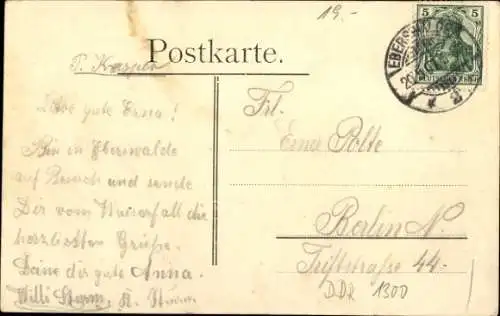 19.-
5 5
EBERSW
Postkarte.
P. Kasper
Liebe gute Erna!
Bin in Eberswalde
auf Besuch und sende
Dir vom Wasserfall die
herzlichsten Grüße.
Deine dir gute Anna.
Willi Sturm, K. Sturm
Frl.
Erna Polte
Berlin N.
Triftstrasse 44-
DDR 1300